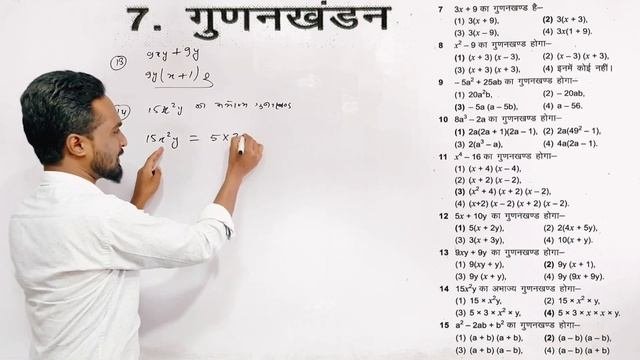 7. गुणनखंडन
(13) 9xy + 9y
9y(x+1)
15x²y का
15x²y = 5×3
7 3x + 9 का गुणनखण्ड है–
(1) 3(x + 9), (2) 3(x + 3),
(3) 3(x – 9), (4) 3x(1 + 9).
8 x² – 9 का गुणनखण्ड होगा–
(1) (x + 3) (x – 3), (2) (x – 3) (x + 3),
(3) (x + 3) (x + 3), (4) इनमें कोई नहीं।
9 – 5a² + 25ab का गुणनखण्ड होगा–
(1) 20a²b, (2) – 20ab,
(3) – 5a (a – 5b), (4) a – 56.
10 8a³ – 2a का गुणनखण्ड होगा–
(1) 2a(2a + 1)(2a – 1), (2) 2a(49² – 1),
(3) 2(a³ – a), (4) 4a(2a – 1).
11 x⁴ – 16 का गुणनखण्ड होगा–
(1) (x + 4) (x – 4),
(2) (x + 2) (x – 2),
(3) (x² + 4) (x + 2) (x – 2),
(4) (x+2) (x – 2) (x + 2) (x – 2).
12 5x + 10y का गुणनखण्ड होगा–
(1) 5(x + 2y), (2) 2(4x + 5y),
(3) 3(x + 3y), (4) 10(x + y).
13 9xy + 9y का गुणनखण्ड होगा–
(1) 9(xy + y), (2) 9y (x + 1),
(3) 9y (x + y), (4) 9y (9x + 9y).
14 15x²y का अभाज्य गुणनखण्ड होगा–
(1) 15 × x²y, (2) 15 × x² × y,
(3) 5 × 3 × x² × y, (4) 5 × 3 × x × x × y.
15 a² – 2ab + b² का गुणनखण्ड होगा–
(1) (a + b) (a + b), (2) (a – b) (a – b),
(3) (a + b) (a – b), (4) (a – b) (a + b)